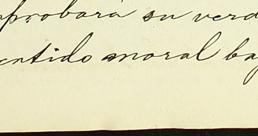 probará su verd
entido moral ba